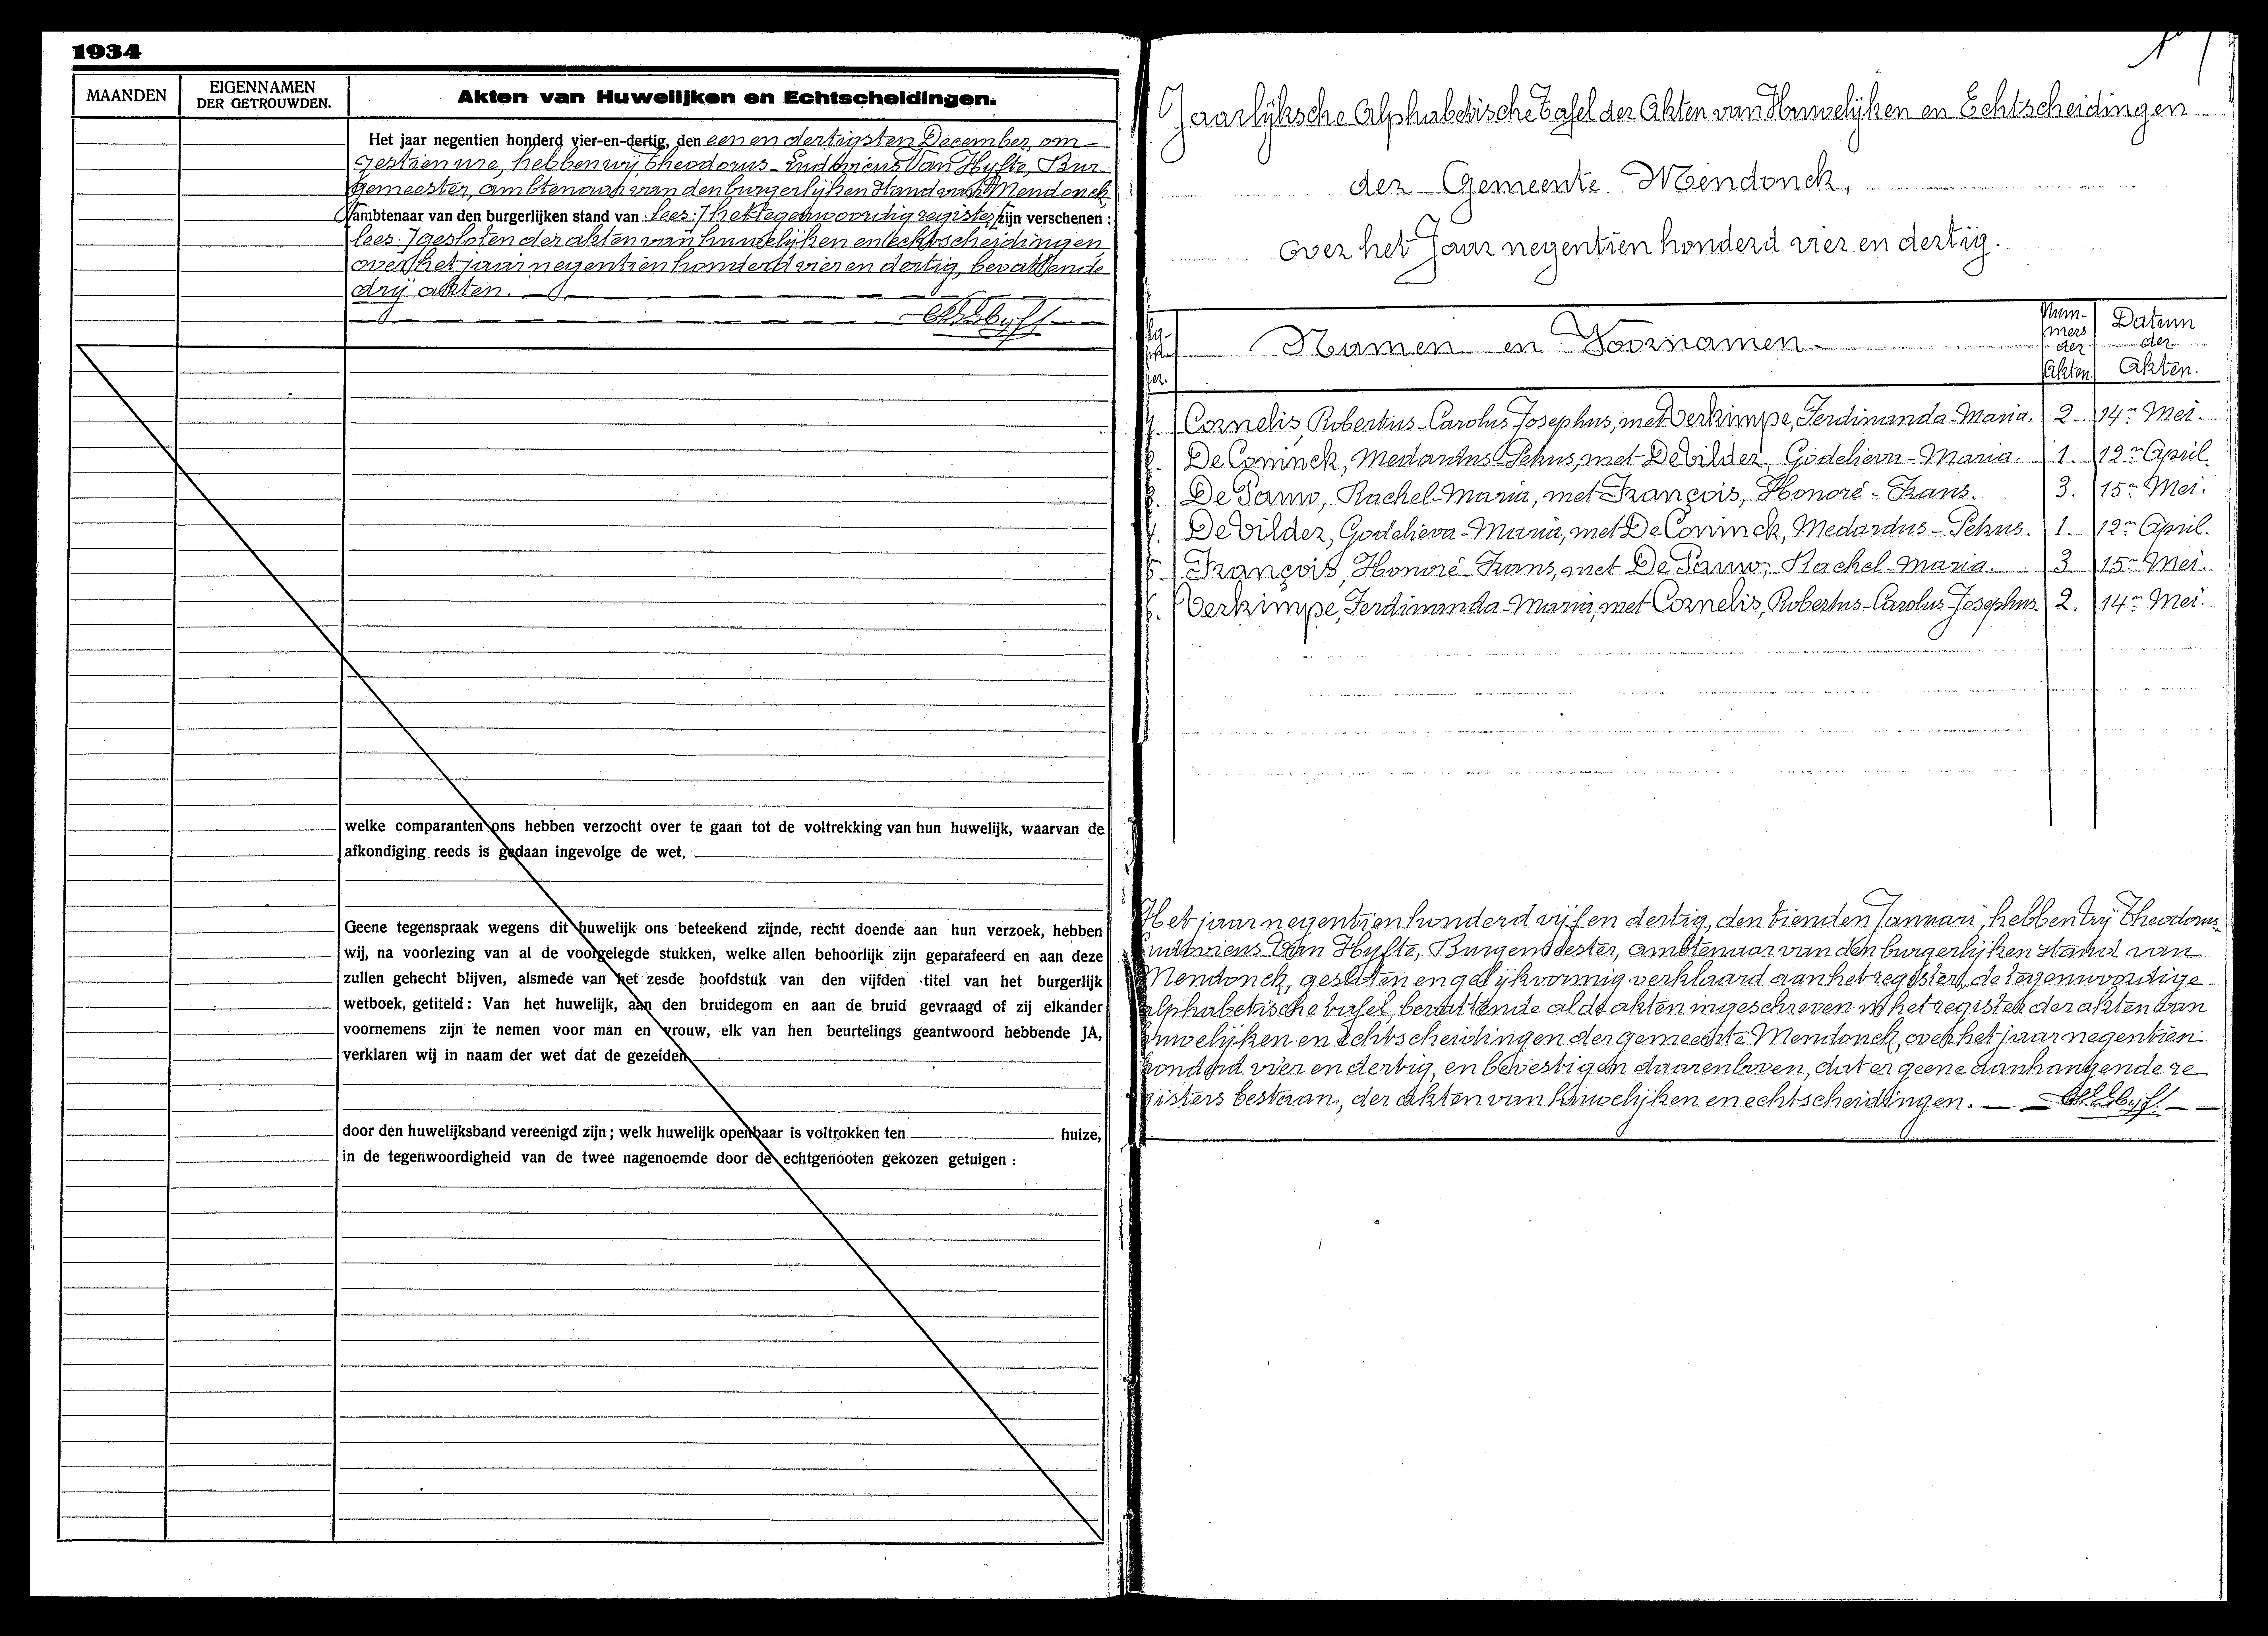 1934
MAANDEN
EIGENNAMEN
DER GETROUWDEN.
Akten van Huwelijken en Echtscheidingen.
Het jaar negentien honderd vier-en-dertig, den een en dertigsten December, om
zestien ure, hebben wij Theodorus-Ludovicus Van Hyfte, Bur-
gemeester, ambtenaar van den burgerlijken stand van Mendonck
ambtenaar van den burgerlijken stand van lees: / het tegenwoordig register / zijn verschenen :
lees: / gesloten der akten van huwelijken en echtscheidingen
over het jaar negentien honderd vier en dertig, bevattende
drij akten.
welke comparanten ons hebben verzocht over te gaan tot de voltrekking van hun huwelijk, waarvan de
afkondiging reeds is gedaan ingevolge de wet,
Geene tegenspraak wegens dit huwelijk ons beteekend zijnde, recht doende aan hun verzoek, hebben
wij, na voorlezing van al de voorgelegde stukken, welke allen behoorlijk zijn geparafeerd en aan deze
zullen gehecht blijven, alsmede van het zesde hoofdstuk van den vijfden titel van het burgerlijk
wetboek, getiteld : Van het huwelijk, aan den bruidegom en aan de bruid gevraagd of zij elkander
voornemens zijn te nemen voor man en vrouw, elk van hen beurtelings geantwoord hebbende JA,
verklaren wij in naam der wet dat de gezeiden
door den huwelijksband vereenigd zijn ; welk huwelijk openbaar is voltrokken ten huize,
in de tegenwoordigheid van de twee nagenoemde door de echtgenooten gekozen getuigen :
Jaarlijksche Alphabetische Tafel der Akten van Huwelijken en Echtscheidingen
der Gemeente Mendonck,
over het Jaar negentien honderd vier en dertig.
Namen en Voornamen
Num-
mers
der
Akten
Datum
der
Akten.
1. Cornelis, Robertus-Carolus Josephus, met Verkimpe, Ferdinanda-Maria. 2. 14n Mei.
2. De Coninck, Medardus-Petrus, met De Vilder, Godelieva-Maria. 1. 12n April.
3. De Pauw, Rachel-Maria, met François, Honoré-Frans. 3. 15n Mei.
4. De Vilder, Godelieva-Maria, met De Coninck, Medardus-Petrus. 1. 12n April.
5. François, Honoré-Frans, met De Pauw, Rachel-Maria. 3 15n Mei.
6. Verkimpe, Ferdinanda-Maria, met Cornelis, Robertus-Carolus-Josephus. 2. 14n Mei.
Het jaar negentien honderd vijf en dertig, den tienden Januari, hebben wij Theodorus-
Ludovicus Van Hyfte, Burgemeester, ambtenaar van den burgerlijken stand van
Mendonck, gesloten en gelijkvormig verklaard aan het register, de tegenwoordige
alphabetische tafel, bevattende al de akten ingeschreven in het register der akten van
huwelijken en echtscheidingen der gemeente Mendonck, over het jaar negentien
honderd vier en dertig, en bevestigen daarenboven, dat er geene aanhangende re-
gisters bestaan, der akten van huwelijken en echtscheidingen.